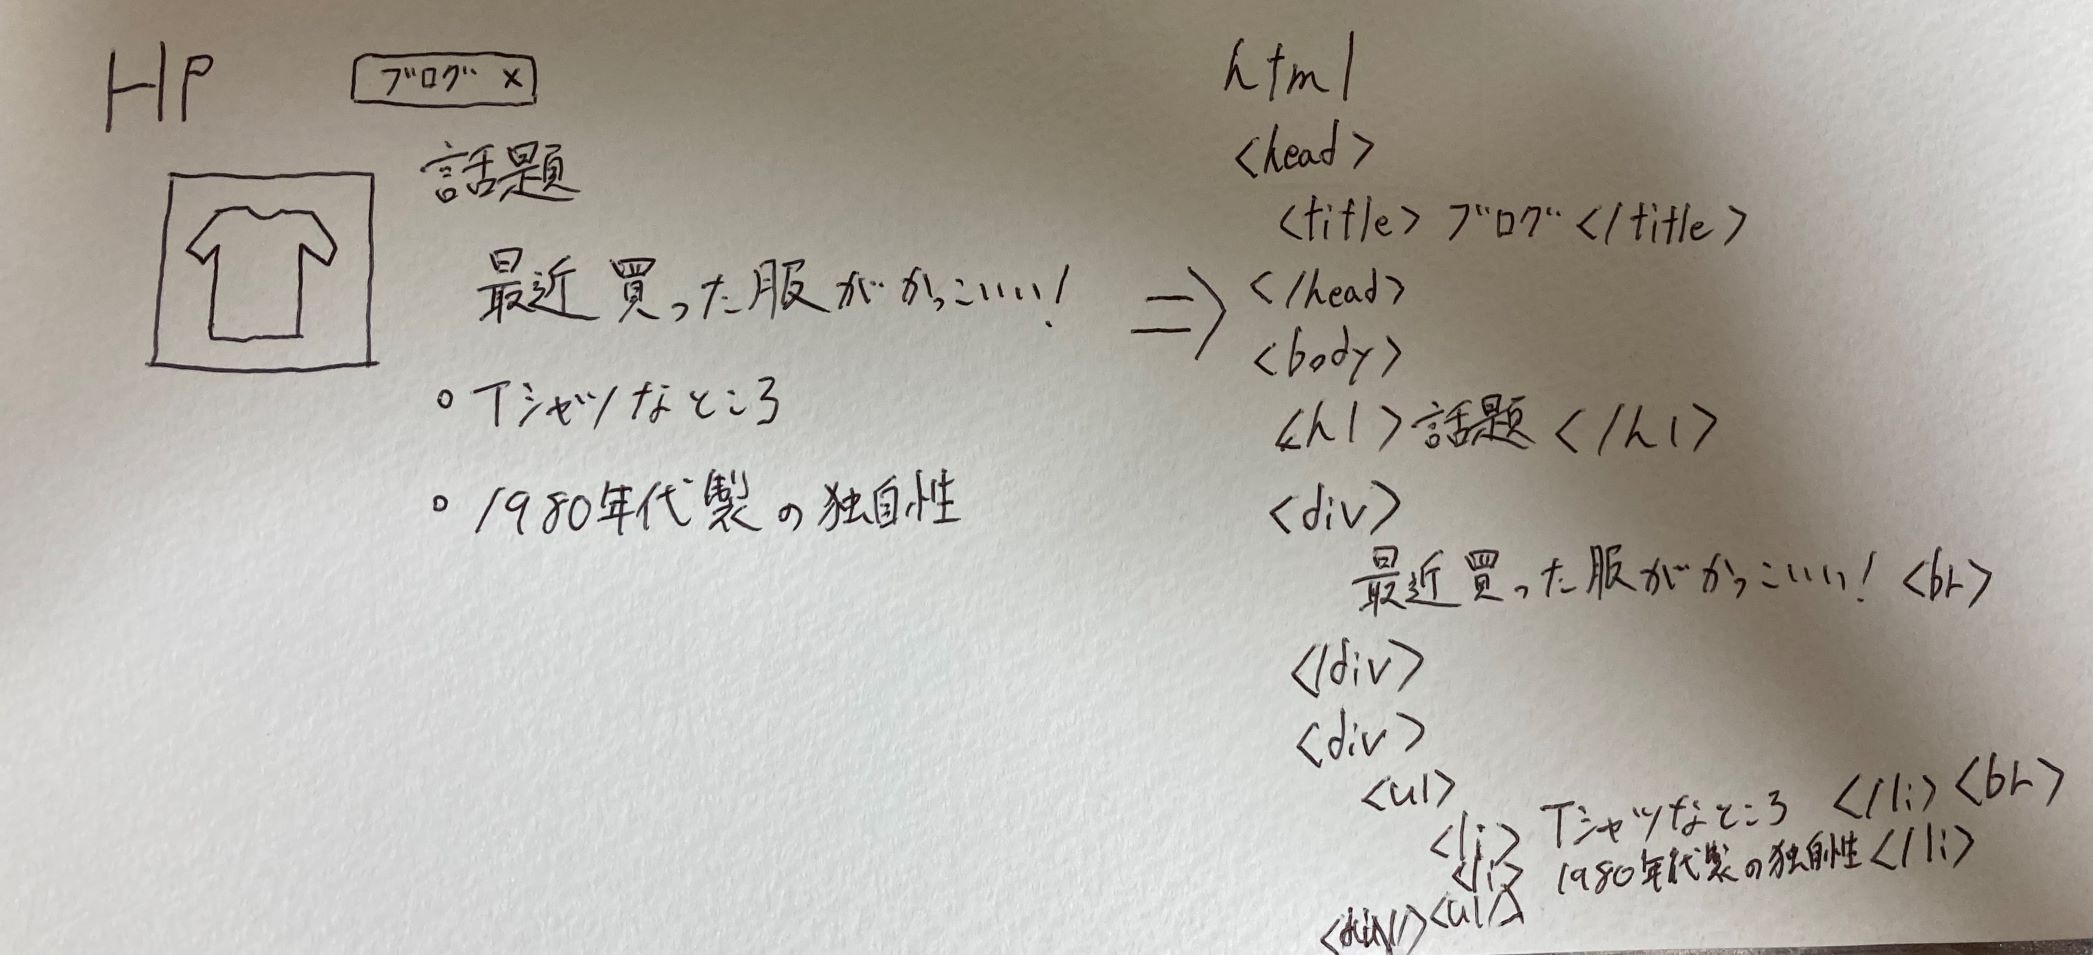 HP
ブログ x
話題
最近買った服がかっこいい!
。Tシャツなところ
。1980年代製の独自性
⇒
html
<head>
<title>ブログ</title>
</head>
<body>
<h1>話題</h1>
<div>
最近買った服がかっこいい!<br>
</div>
<div>
<ul>
<li>Tシャツなところ</li><br>
<li>1980年代製の独自性</li>
<ul/>
<div/>